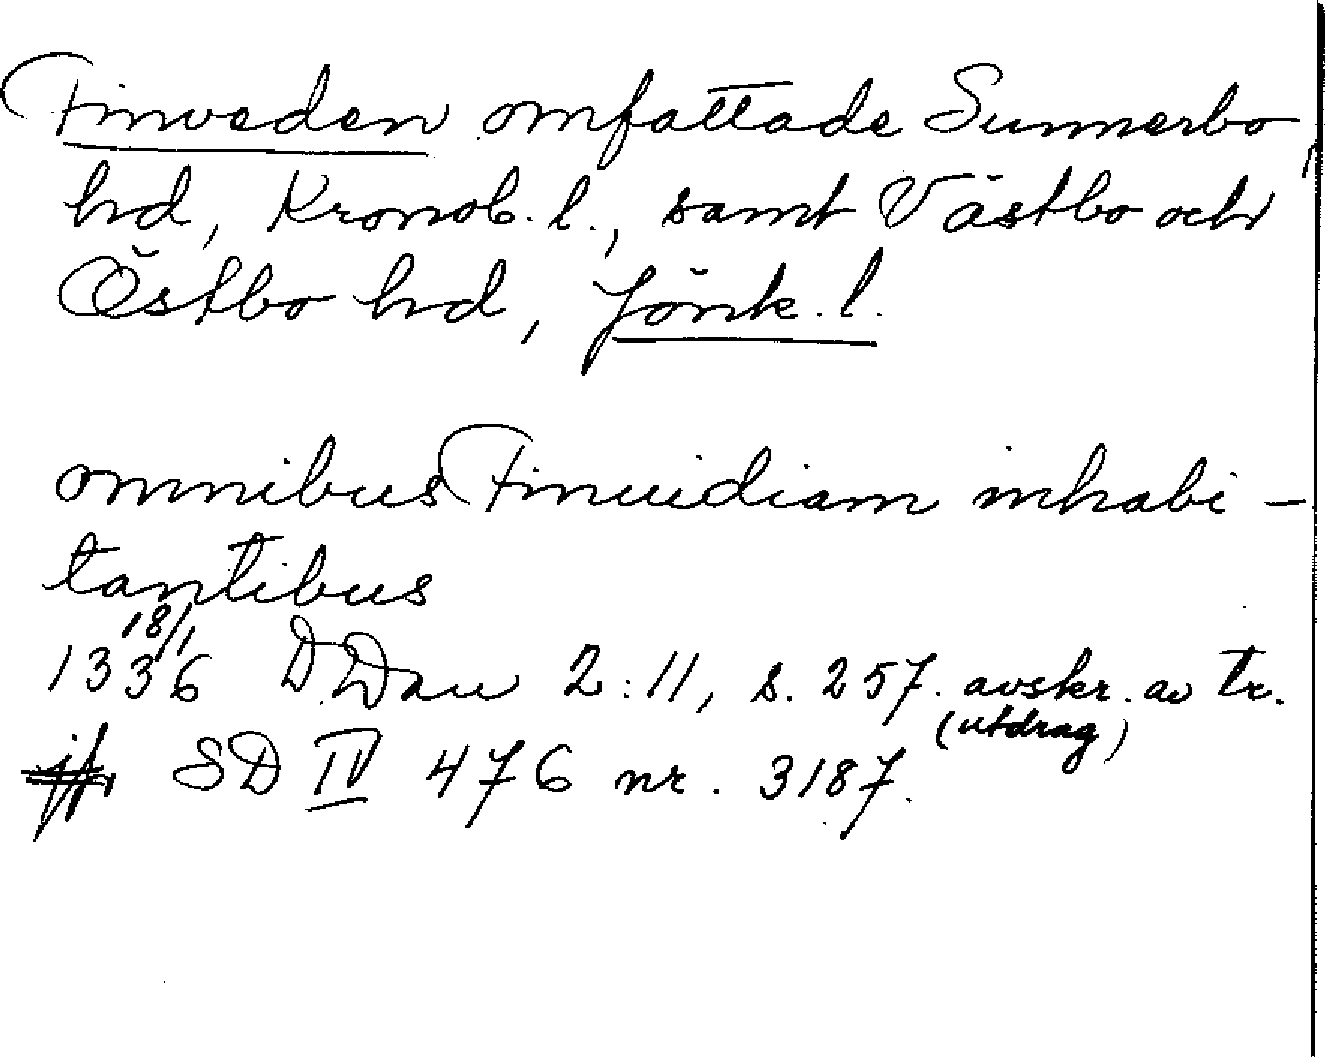 Finveden omfattade Sunnerbo
hd, Kronob. l., samt Västbo och
Östbo hd, Jönk. l.
omnibus Finuidiam inhabi-
tantibus
18/1
1336 D Dan 2:11, s. 257. avskr. av tr.
(utdrag)
SD IV 476 nr. 3187.